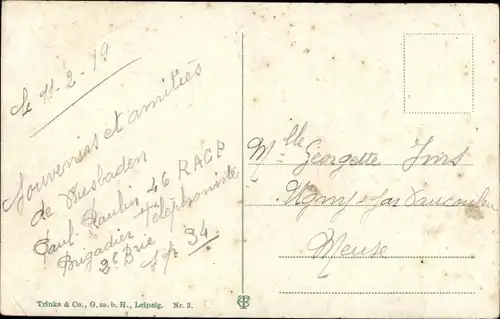 le 11-2-19
Souvenirs et amitiés
de Wiesbaden
Paul Paulin 46 RACP
Brigadier Téléphoniste
3e Brie SP. 34
Mlle Georgette
Ugny par Vaucouleurs
Meuse
Trinks & Co., G. m. b. H., Leipzig. Nr. 2.